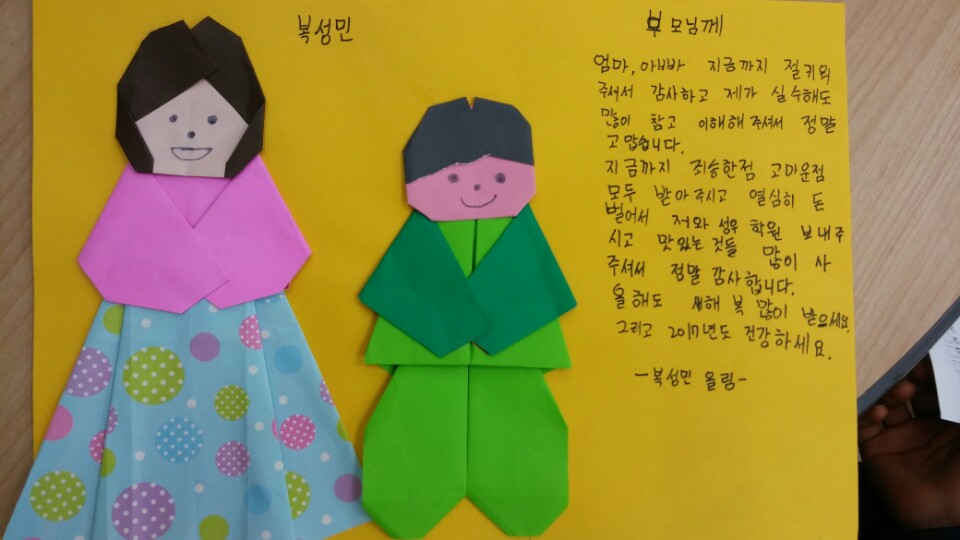 복성민
부모님께
엄마, 아빠 지금까지 절 키워
주셔서 감사하고 제가 실수해도
많이 참고 이해해 주셔서 정말
고맙습니다.
지금까지 죄송한점 고마운점
모두 받아주시고 열심히 돈
벌어서 저와 성우 학원 보내주
시고 맛있는것들 많이 사
주셔서 정말 감사합니다.
올해도 새해 복 많이 받으세요.
그리고 2017년도 건강하세요.
-복성민 올림-